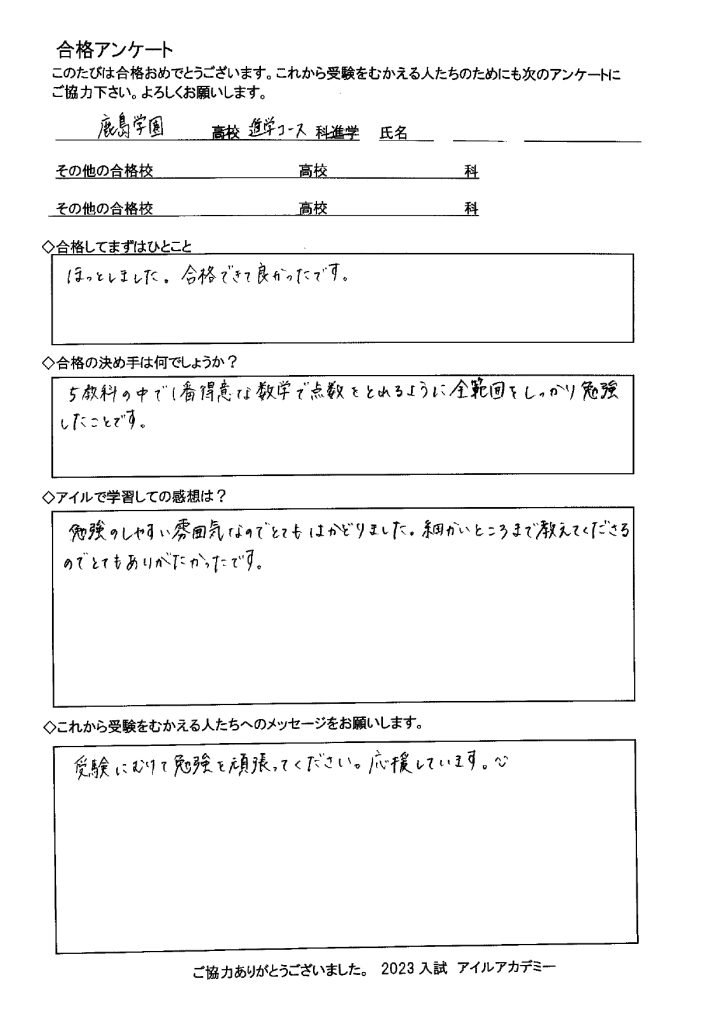 合格アンケート
このたびは合格おめでとうございます。これから受験をむかえる人たちのためにも次のアンケートに
ご協力下さい。よろしくお願いします。
鹿島学園 高校 進学コース 科進学 氏名
その他の合格校 高校 科
その他の合格校 高校 科
◇合格してまずはひとこと
ほっとしました。合格できて良かったです。
◇合格の決め手は何でしょうか？
5教科の中で1番得意な数学で点数をとれるように全範囲をしっかり勉強
したことです。
◇アイルで学習しての感想は？
勉強のしやすい雰囲気なのでとてもはかどりました。細かいところまで教えてくださる
のでとてもありがたかったです。
◇これから受験をむかえる人たちへのメッセージをお願いします。
受験にむけて勉強を頑張ってください。応援しています。
ご協力ありがとうございました。 2023入試 アイルアカデミー